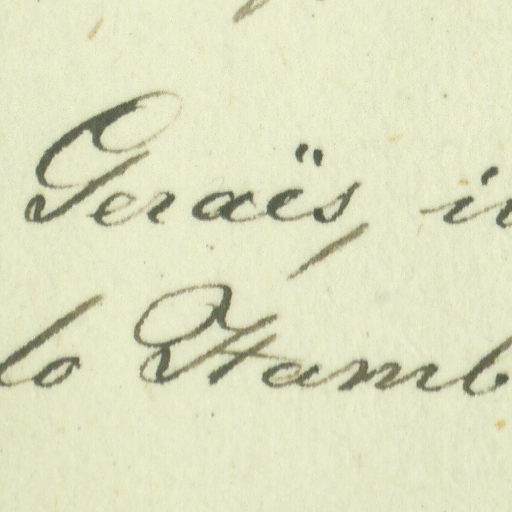 Geraës, in
lo Hamb